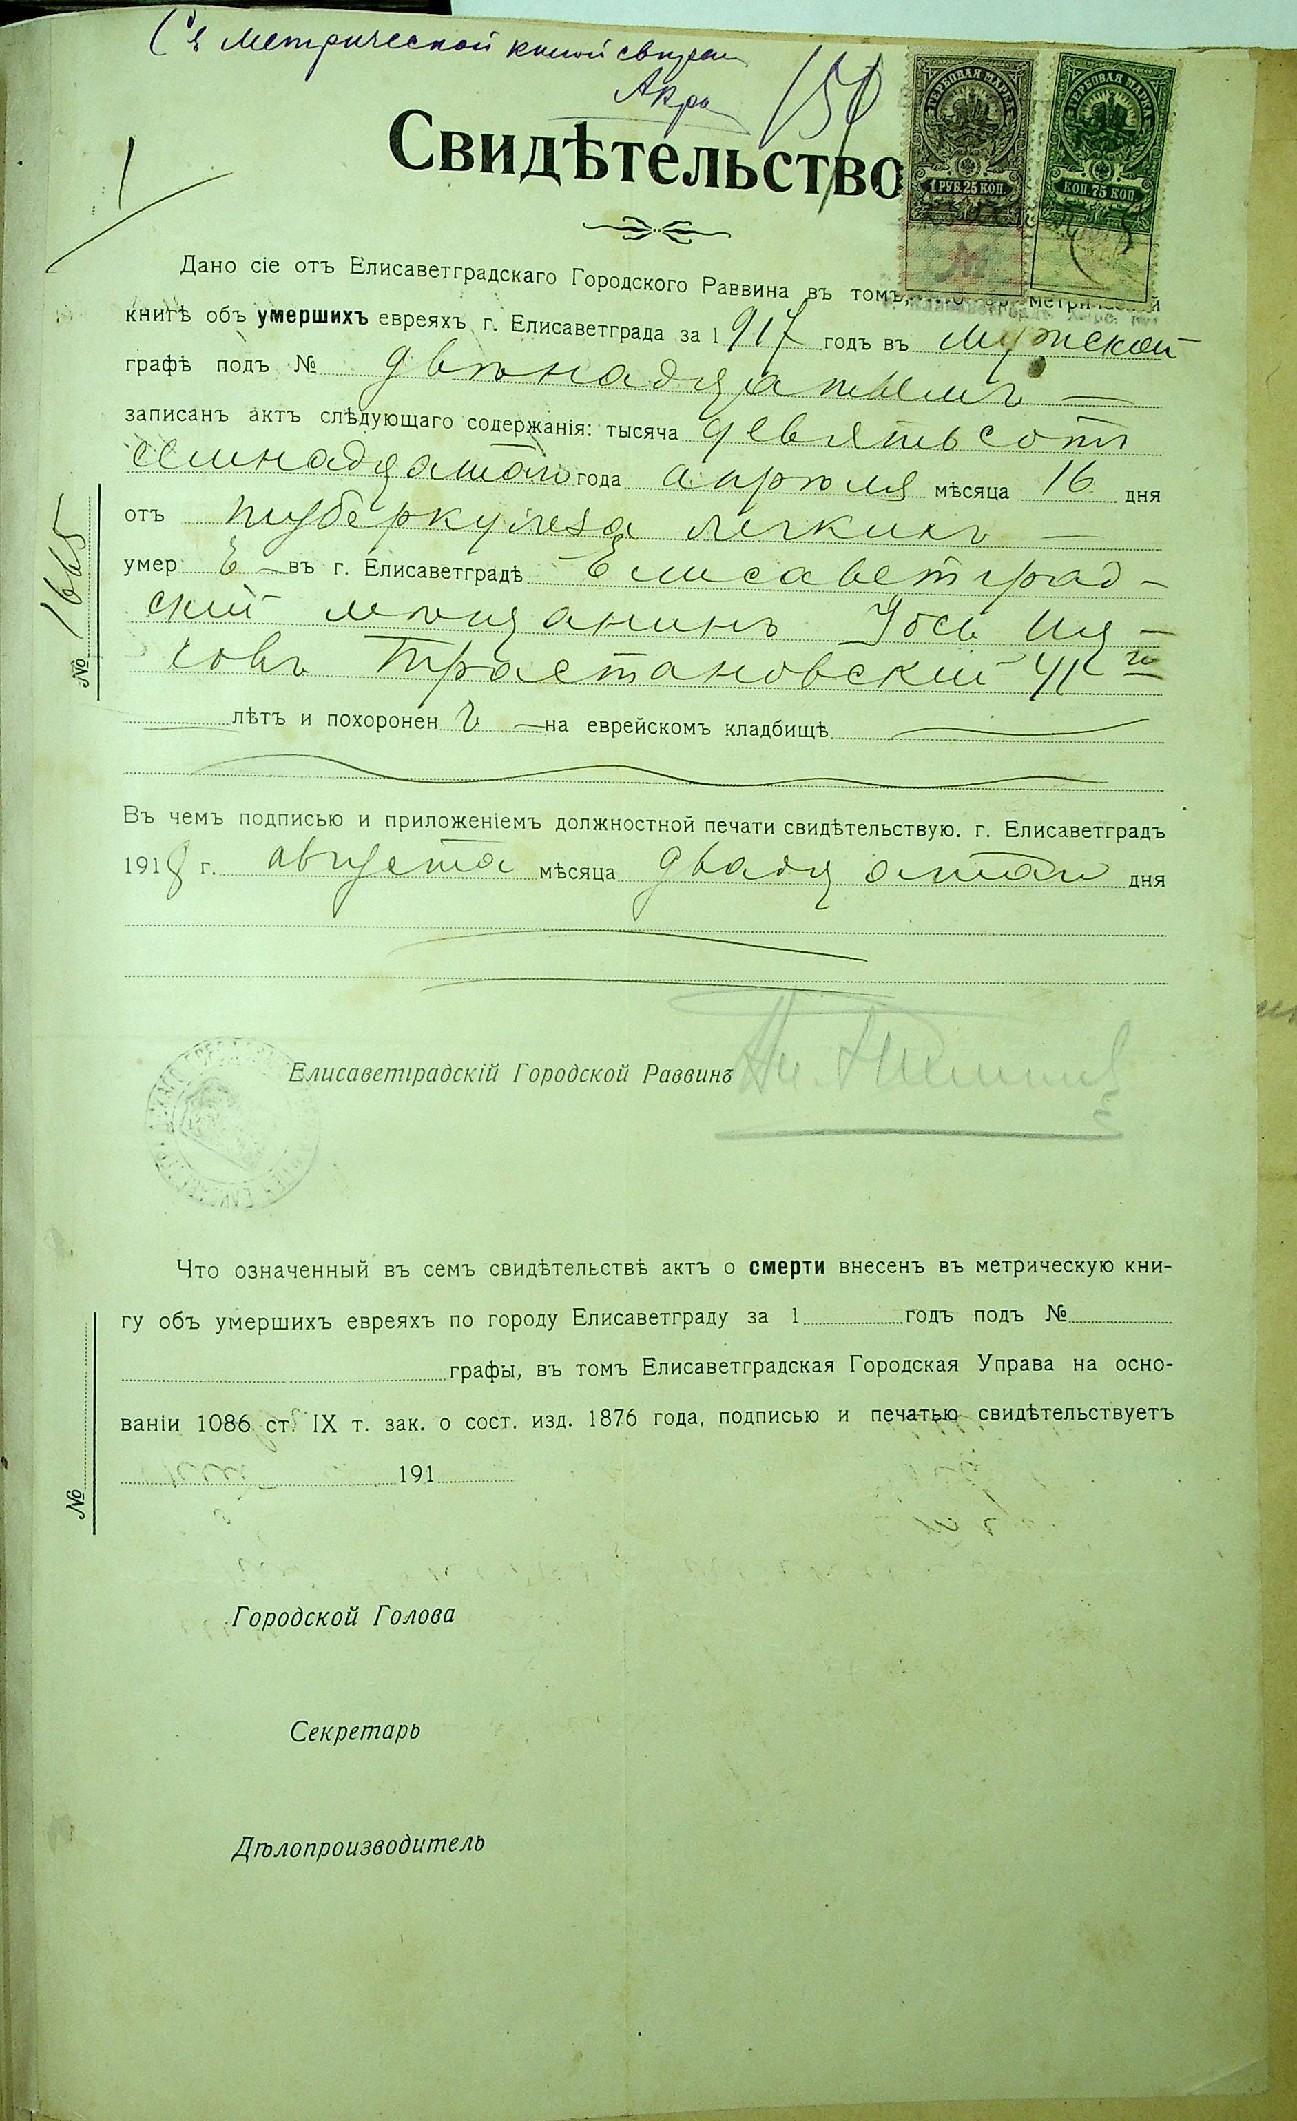 Съ метрической книгой
150
1
ГЕРБОВАЯ МАРКА
1 РУБ. 25 КОП.
ГЕРБОВАЯ МАРКА
КОП. 75 КОП.
Свидѣтельство
Дано сіе отъ Елисаветградскаго Городского Раввина въ томъ,
книгѣ объ умершихъ евреяхъ г. Елисаветграда за 1917 годъ въ мужской
графѣ подъ № двѣнадцатымъ
записанъ актъ слѣдующаго содержанія: тысяча девятьсотъ
семнадцатаго года апрѣля мѣсяца 16 дня
отъ туберкулеза легкихъ
умеръ въ г. Елисаветградѣ Елисаветград-
скій мѣщанинъ Іось
Трастановскій
лѣтъ и похороненъ на еврейскомъ кладбищѣ
№ 1665
Въ чемъ подписью и приложеніемъ должностной печати свидѣтельствую. г. Елисаветградъ
1918 г. августа мѣсяца двадцатаго дня
Елисаветградскій Городской Раввинъ
Что означенный въ семъ свидѣтельствѣ актъ о смерти внесенъ въ метрическую кни-
гу объ умершихъ евреяхъ по городу Елисаветграду за 1 годъ подъ №
графы, въ томъ Елисаветградская Городская Управа на осно-
ваніи 1086 ст. IX т. зак. о сост. изд. 1876 года, подписью и печатью свидѣтельствуетъ
191
№
Городской Голова
Секретарь
Дѣлопроизводитель